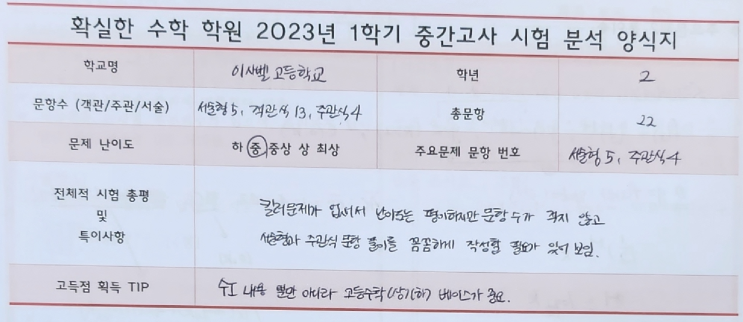 확실한 수학 학원 2023년 1학기 중간고사 시험 분석 양식지
학교명 이사벨 고등학교 학년 2
문항수 (객관/주관/서술) 서술형 5, 객관식 13, 주관식 4 총문항 22
문제 난이도 하 중 중상 상 최상 주요문제 문항 번호 서술형 5, 주관식 4
전체적 시험 총평
및
특이사항
킬러문제가 없어서 난이도는 평이하지만 문항 수가 적지 않고
서술형과 주관식 문항 풀이를 꼼꼼하게 작성할 필요가 있어 보임.
고득점 획득 TIP 수Ⅰ 내용 뿐만 아니라 고등수학(상)(하) 베이스가 중요.